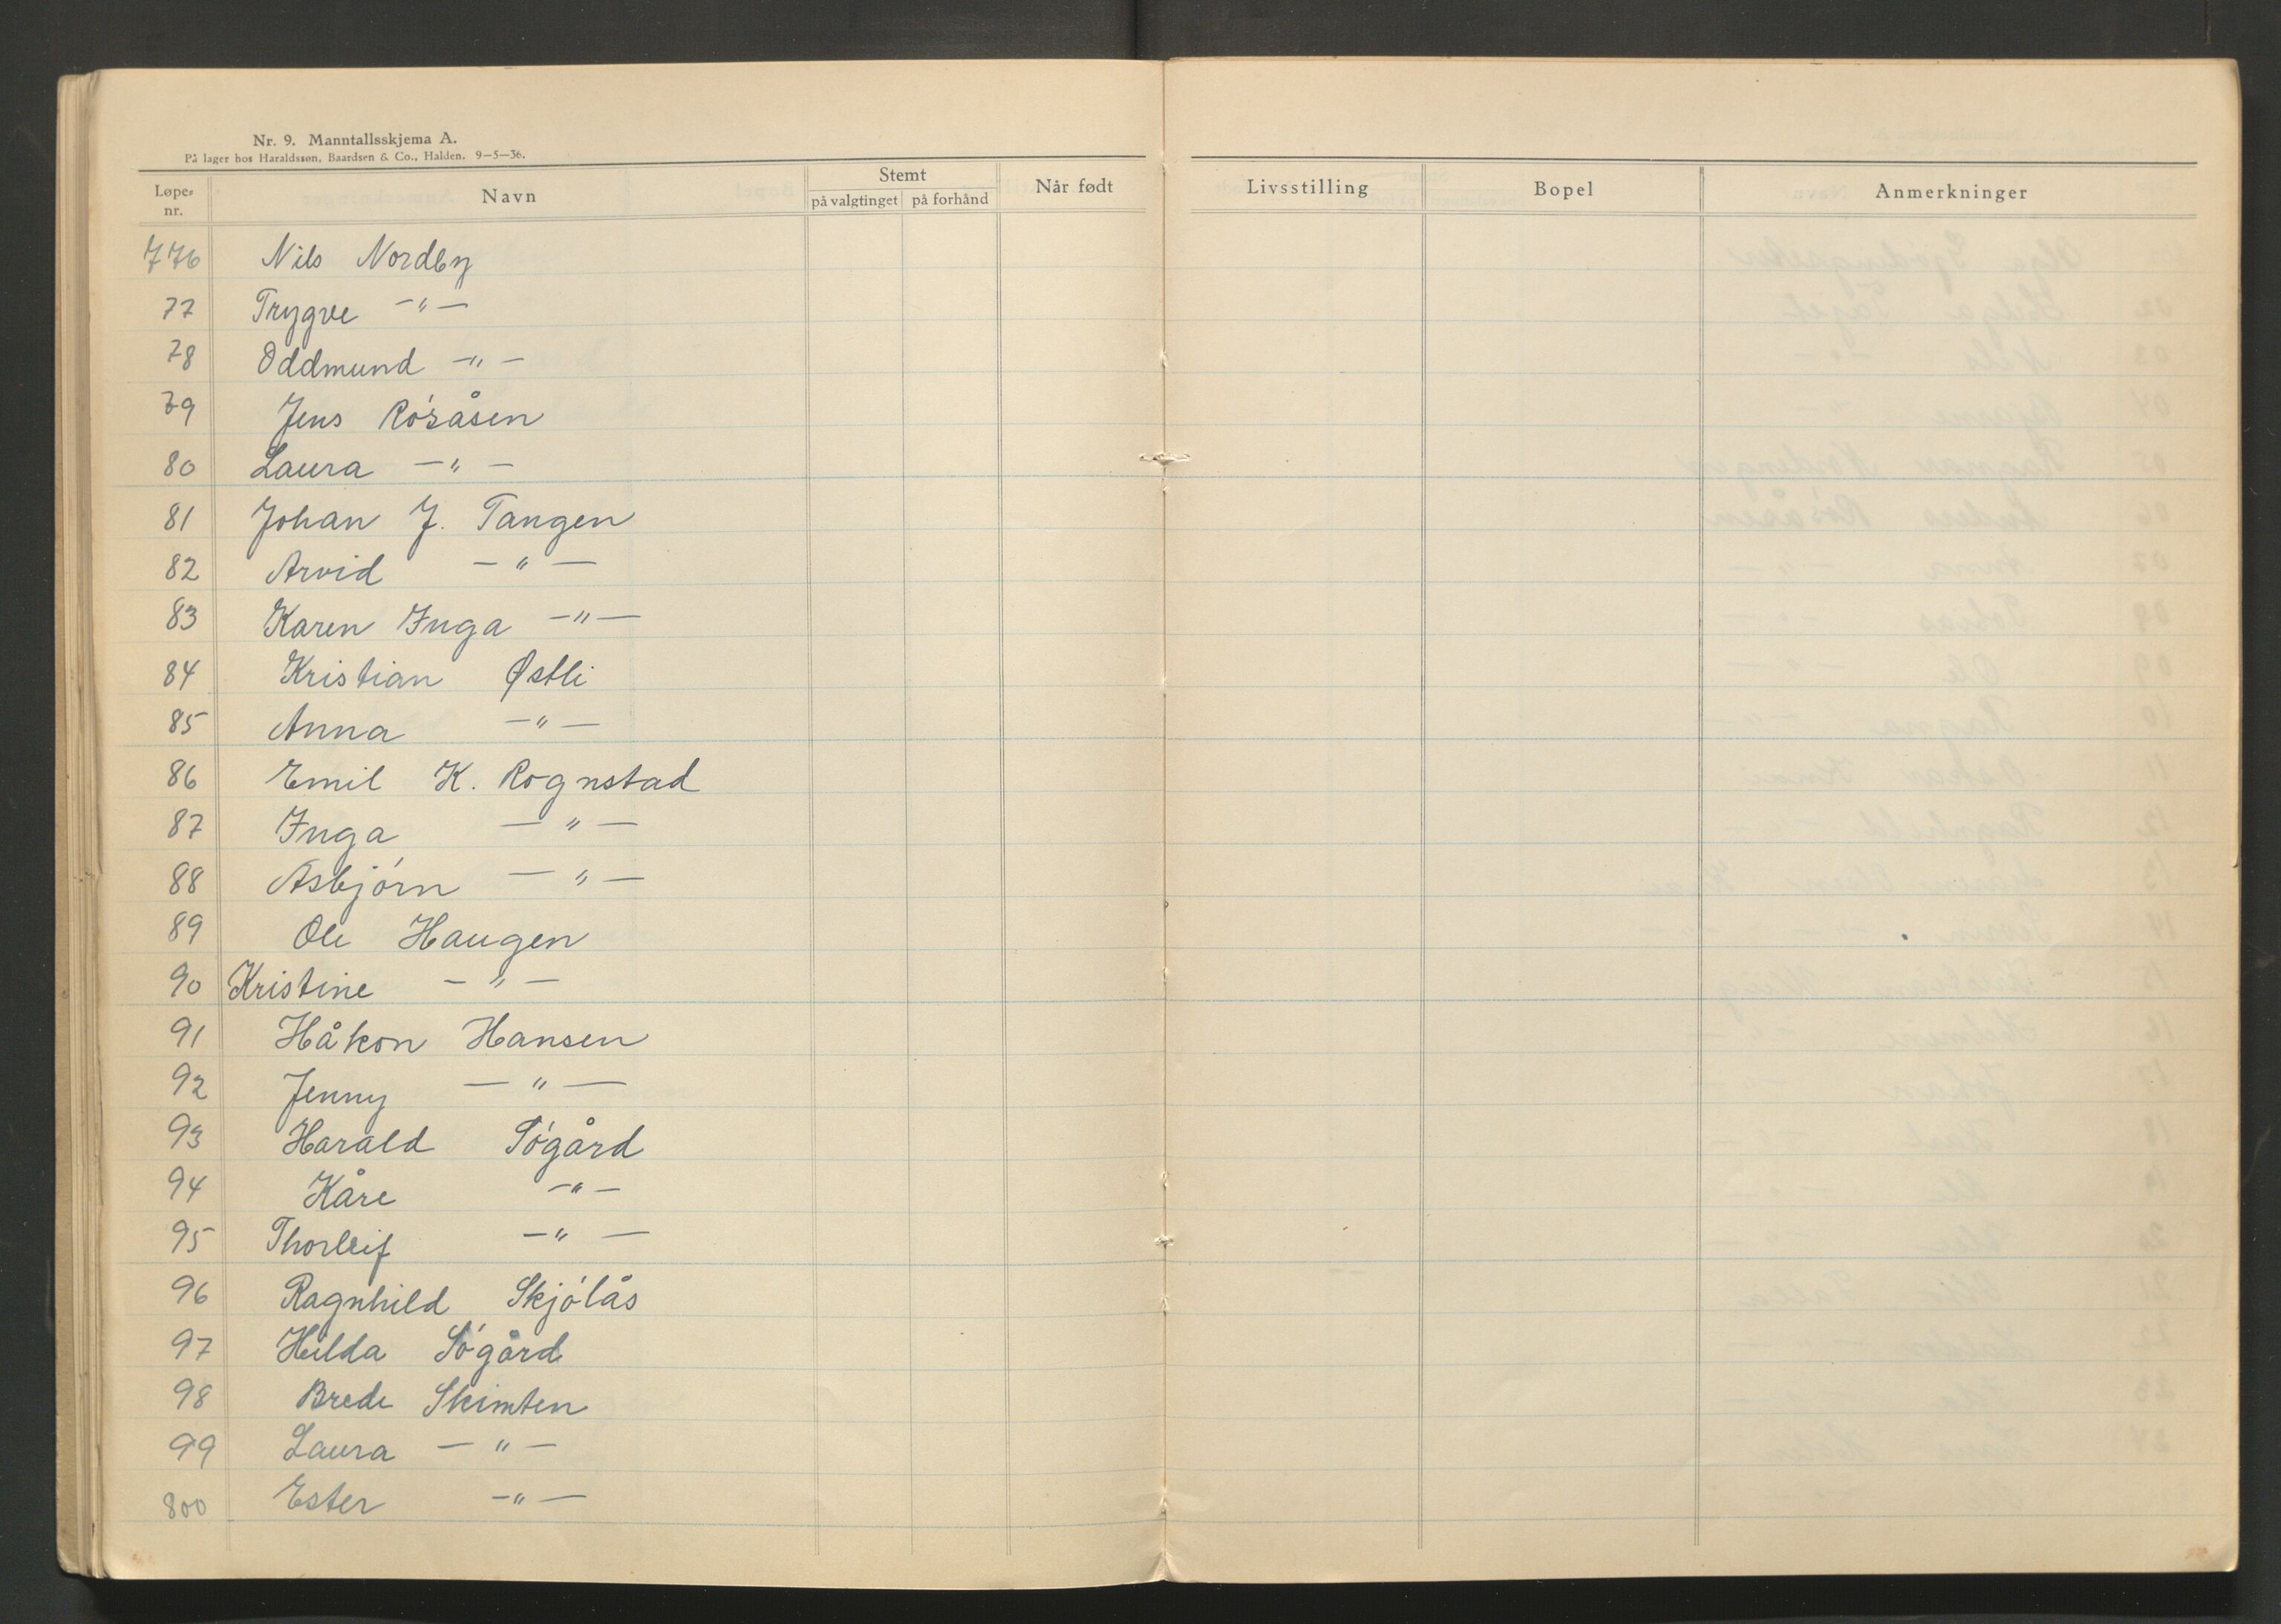 Nr. 9. Manntallsskjema A.
På lager hos Haraldssøn, Baardsen & Co., Halden. 9—5—36.
Løpe-nr. Navn Stemt på valgtinget på forhånd Når født Livsstilling Bopel Anmerkninger
776 Nils Nordby
77 Trygve —"—
78 Oddmund —"—
79 Jens Rósåsen
80 Laura —"—
81 Johan J. Tangen
82 Arvid —"—
83 Karen Inga —"—
84 Kristian Østli
85 Anna —"—
86 Emil K. Rognstad
87 Inga —"—
88 Asbjórn —"—
89 Ole Haugen
90 Kristine —"—
91 Håkon Hansen
92 Jenny —"—
93 Harald Sógård
94 Kåre —"—
95 Thorleif —"—
96 Ragnhild Skjólås
97 Hilda Sógård
98 Brede Skimten
99 Laura —"—
800 Ester —"—